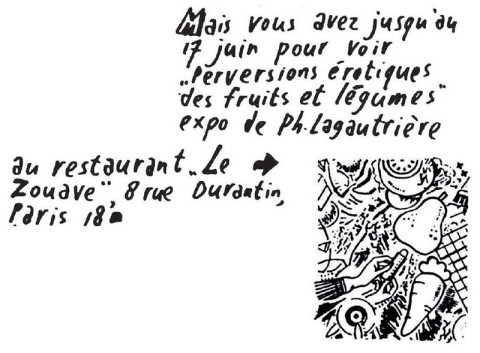 Mais vous avez jusqu'au
17 juin pour voir
„Perversions érotiques
des fruits et légumes"
expo de Ph. Lagautrière
au restaurant „Le →
Zouave" 8 rue Durantin,
Paris 18e